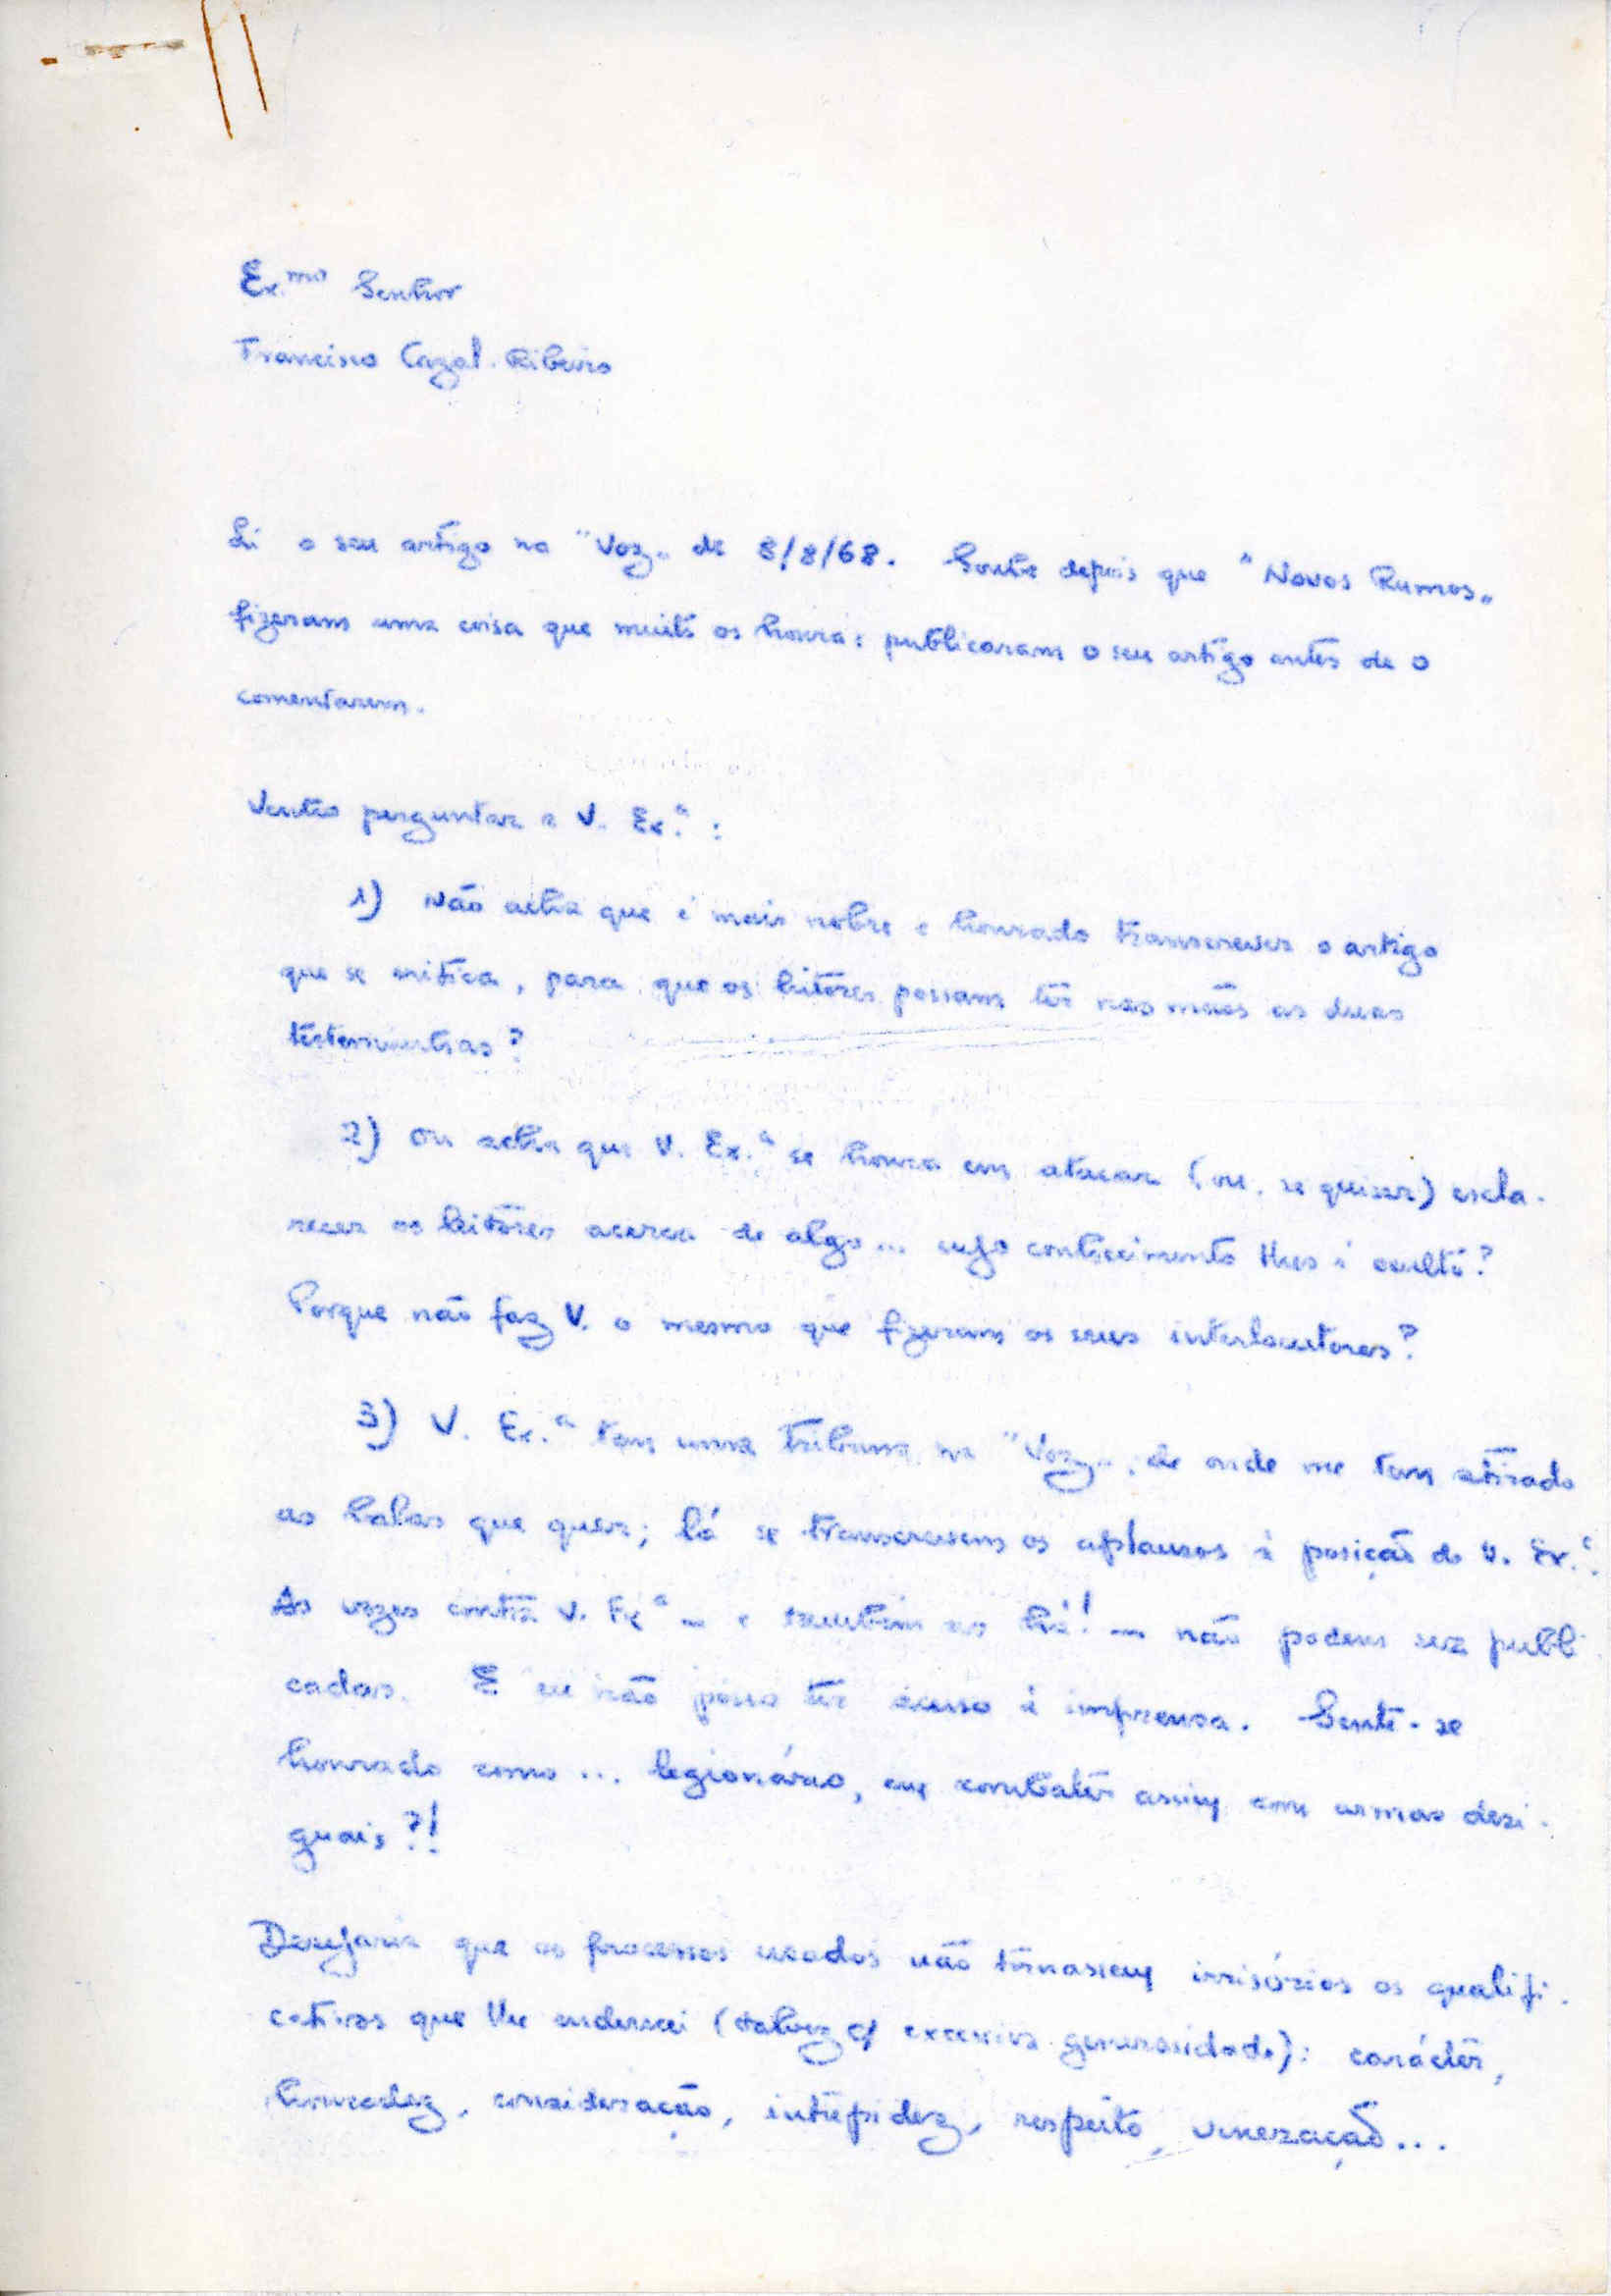 Ex.mo Senhor
Francisco Cazal-Ribeiro
Li o seu artigo na "Voz" de 8/8/68. Soube depois que "Novos Rumos"
fizeram uma coisa que muito os honra: publicaram o seu artigo antes de o
comentarem.
Venho perguntar a V. Ex.ª:
1) Não acha que é mais nobre e honrado transcrever o artigo
que se critica, para que os leitores possam ter nas mãos as duas
testemunhas?
2) Ou acha que V. Ex.ª se honra em atacar (ou, se quiser) escla-
recer os leitores acerca de algo... cujo conhecimento lhes é oculto?
Porque não faz V. o mesmo que fizeram os seus interlocutores?
3) V. Ex.ª tem uma tribuna na "Voz", de onde me tem atirado
as balas que quer; lá se transcrevem os aplausos à posição de V. Ex.ª.
As vozes contra V. Ex.ª — e também as há! — não podem ser publi-
cadas. E eu não posso ter acesso à imprensa. Sente-se
honrado como... legionário, em combater assim com armas desi-
guais?!
Desejaria que os processos usados não tornassem irrisórios os qualifi-
cativos que lhe enderecei (talvez c/ excessiva generosidade): carácter,
honradez, consideração, intrepidez, respeito, veneração...